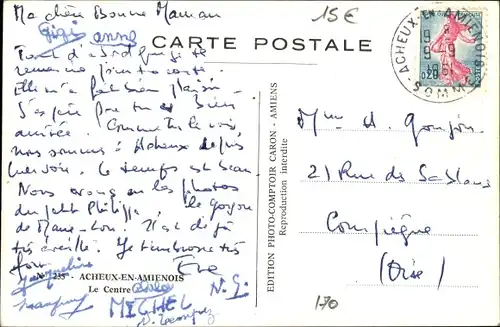 Ma chère Bonne Maman
Gigi anne
15€
CARTE POSTALE
ACHEUX-EN-AMIENOIS
SOMME
0,20
je te
remercie
Elle m'a fait bien plaisir
J'espère que tu es bien
arrivée. Comme tu le vois,
nous sommes à Acheux depuis
hier soir. Le temps est beau
Nous avons eu les photos
du petit Philippe, le garçon
de Il est déjà
très éveillé. Je t'embrasse très
fort
Eve
Jacqueline
N° 235 - ACHEUX-EN-AMIENOIS
Le Centre
MICHEL
N.G.
EDITION PHOTO-COMPTOIR CARON - AMIENS
Reproduction interdite
Mme A. Goujon
21 Rue des Sablons
Compiègne
(Oise)
170